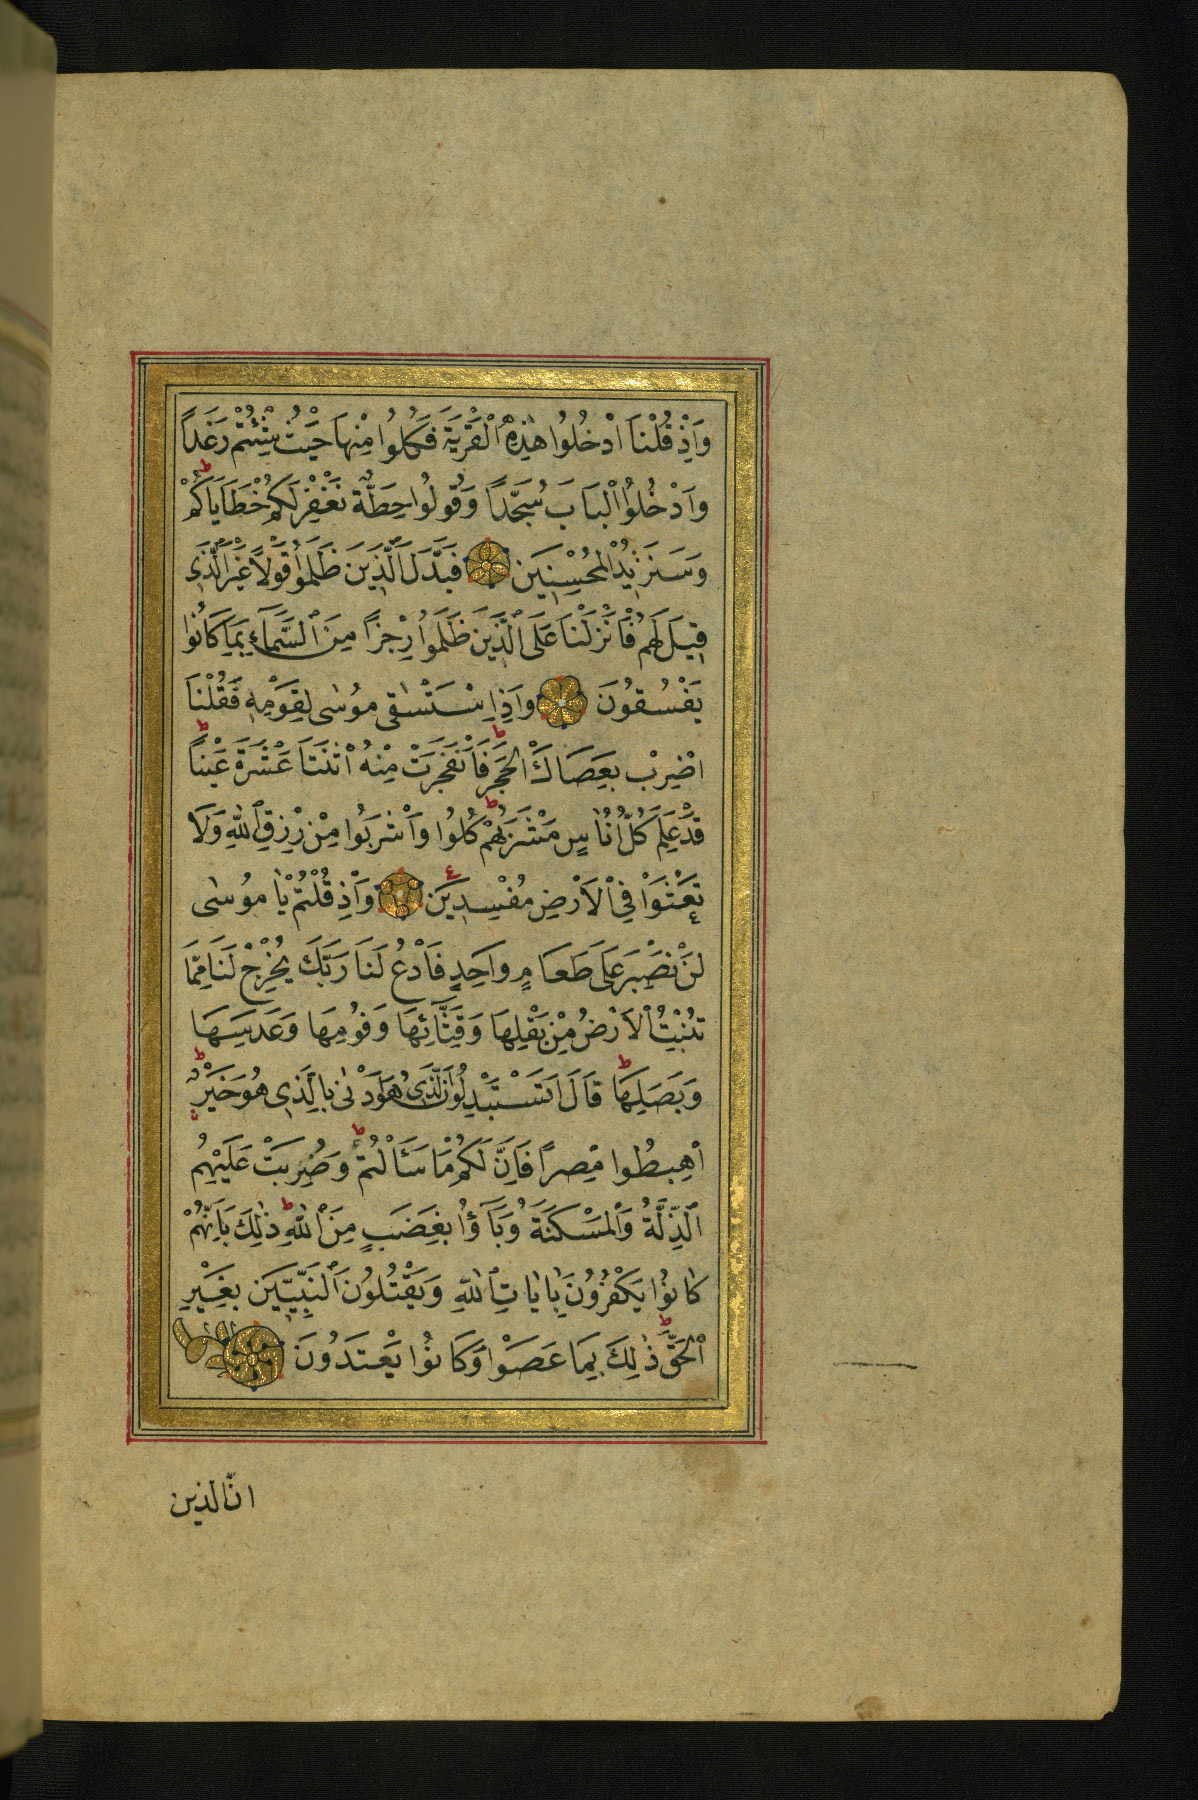 وَاِذْ قُلْنَا ادْخُلُوا هٰذِهِ الْقَرْيَةَ فَكُلُوا مِنْهَا حَيْثُ شِئْتُمْ رَغَداً
وَادْخُلُوا الْبَابَ سُجَّداً وَقُولُوا حِطَّةٌ نَغْفِرْ لَكُمْ خَطَايَاكُمْ ط
وَسَنَزٖيدُ الْمُحْسِنٖينَ فَبَدَّلَ الَّذٖينَ ظَلَمُوا قَوْلاً غَيْرَ الَّذٖي
قٖيلَ لَهُمْ فَاَنْزَلْنَا عَلَى الَّذٖينَ ظَلَمُوا رِجْزاً مِنَ السَّمَآءِ بِمَا كَانُوا
يَفْسُقُونَ وَاِذِ اسْتَسْقٰى مُوسٰى لِقَوْمِهٖ فَقُلْنَا
اضْرِبْ بِعَصَاكَ الْحَجَرَ ط فَانْفَجَرَتْ مِنْهُ اثْنَتَا عَشْرَةَ عَيْناً ط
قَدْ عَلِمَ كُلُّ اُنَاسٍ مَشْرَبَهُمْ ط كُلُوا وَاشْرَبُوا مِنْ رِزْقِ اللّٰهِ وَلَا
تَعْثَوْا فِي الْاَرْضِ مُفْسِدٖينَ ع وَاِذْ قُلْتُمْ يَا مُوسٰى
لَنْ نَصْبِرَ عَلٰى طَعَامٍ وَاحِدٍ فَادْعُ لَنَا رَبَّكَ يُخْرِجْ لَنَا مِمَّا
تُنْبِتُ الْاَرْضُ مِنْ بَقْلِهَا وَقِثَّائِهَا وَفُومِهَا وَعَدَسِهَا
وَبَصَلِهَا ط قَالَ اَتَسْتَبْدِلُونَ الَّذٖي هُوَ اَدْنٰى بِالَّذٖي هُوَ خَيْرٌ ط
اهْبِطُوا مِصْراً فَاِنَّ لَكُمْ مَا سَاَلْتُمْ ط وَضُرِبَتْ عَلَيْهِمُ
الذِّلَّةُ وَالْمَسْكَنَةُ وَبَآؤُا بِغَضَبٍ مِنَ اللّٰهِ ط ذٰلِكَ بِاَنَّهُمْ
كَانُوا يَكْفُرُونَ بِاٰيَاتِ اللّٰهِ وَيَقْتُلُونَ النَّبِيّٖينَ بِغَيْرِ
الْحَقِّ ط ذٰلِكَ بِمَا عَصَوْا وَكَانُوا يَعْتَدُونَ
انّ الذين